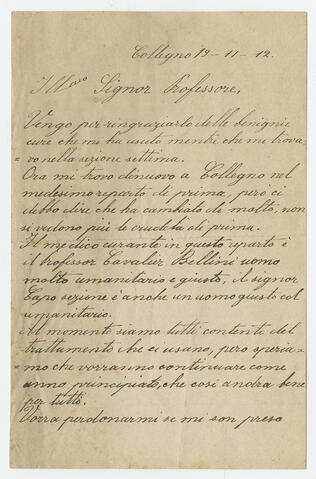 Collegno 19-11-12.
Illmo Signor Professore,
Vengo per ringraziarlo delle benignie
cure che mi ha usato mentre che mi trova
= vo nella sezione settima.
Ora mi trovo dinuovo a Collegno nel
medesimo reparto di prima, però ci
debbo dire che ha cambiato di molto, non
si vedono più le crudeltà di prima.
Il medico curante in questo reparto è
il Professor Cavalier Bellini uomo
molto umanitario e giusto, il signor
Capo sezione è anche un uomo giusto ed
umanitario.
Al momento siamo tutti contenti del
trattamento che ci usano, pero speria=
mo che vorranno continuare come
anno principiato, che così andra bene
per tutti.
Vorra perdonarmi se mi son preso